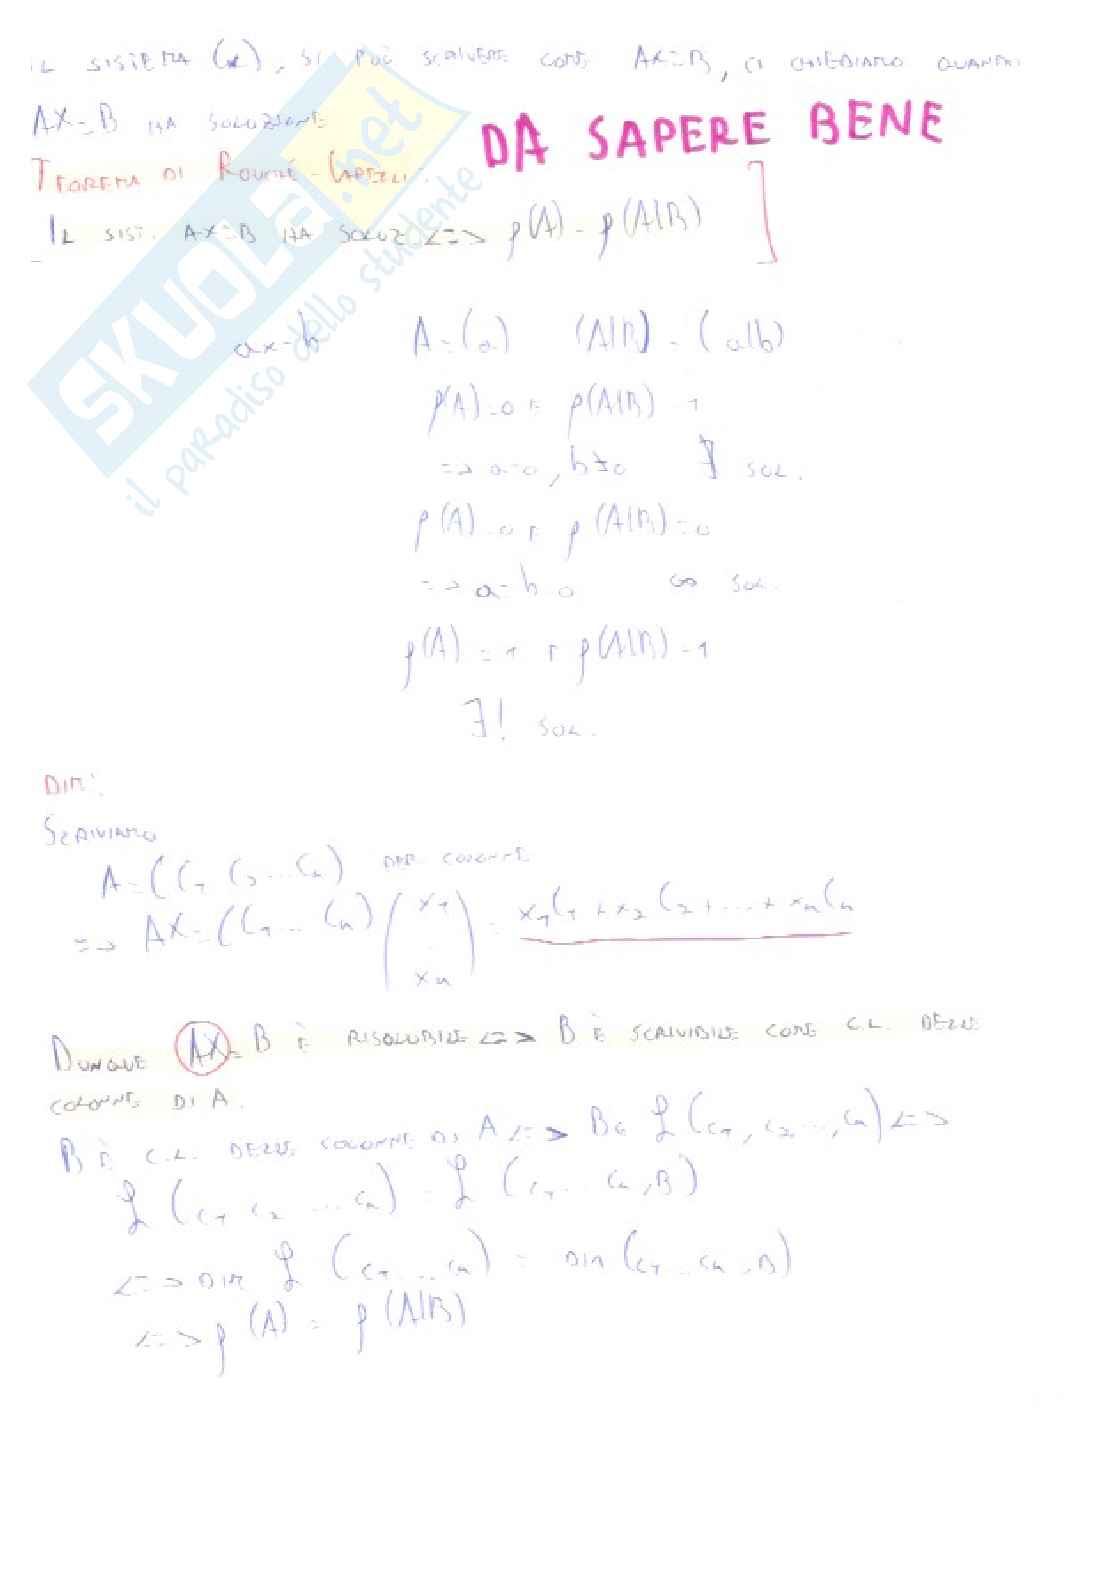 IL SISTEMA (*), SI PUÒ SCRIVERE COME AX=B, CI CHIEDIAMO QUANDO
AX=B HA SOLUZIONE
DA SAPERE BENE
TEOREMA DI ROUCHÉ-CAPELLI:
IL SIST. AX=B HA SOLUZ <=> ρ(A) = ρ(A|B)
ax=b A=(a) (A|B) = (a|b)
ρ(A)=0 E ρ(A|B)=1
=> a=0, b≠0 ∄ SOL.
ρ(A)=0 E ρ(A|B)=0
=> a=b=0 ∞ SOL.
ρ(A)=1 E ρ(A|B)=1
∃! SOL.
DIM:
SCRIVIAMO
A=(C1 C2...Cn) PER COLONNE
=> AX=(C1...Cn) (x1 . xn) = x1C1+x2C2+...+xnCn
DUNQUE AX=B È RISOLUBILE <=> B È SCRIVIBILE COME C.L. DELLE
COLONNE DI A.
B È C.L. DELLE COLONNE DI A <=> B∈ ℒ(C1, C2,..., Cn) <=>
ℒ(C1 C2 ...Cn) = ℒ(C1...Cn, B)
<=> DIM ℒ(C1...Cn) = DIM(C1...Cn, B)
<=> ρ(A) = ρ(A|B)
SKUOLA.net
il paradiso dello studente